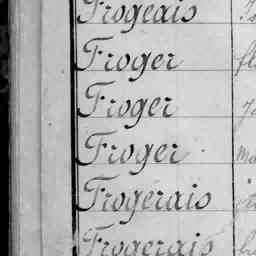 Frogeais
Froger
Froger
Froger
Frogerais
Frogerais